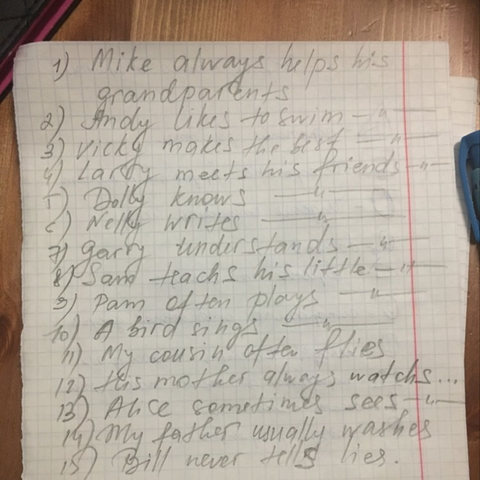 1) Mike always helps his
grandparents
2) Andy likes to swim — " —
3) Vicky makes the best — " —
4) Larry meets his friends — " —
5) Dolly knows — " —
6) Nelly writes — " —
7) Garry understands — " —
8) Sam teachs his little — " —
9) Pam often plays — " —
10) A bird sings — " —
11) My cousin often flies
12) His mother always watchs...
13) Alice sometimes sees — " —
14) My father usually washes
15) Bill never tells lies.